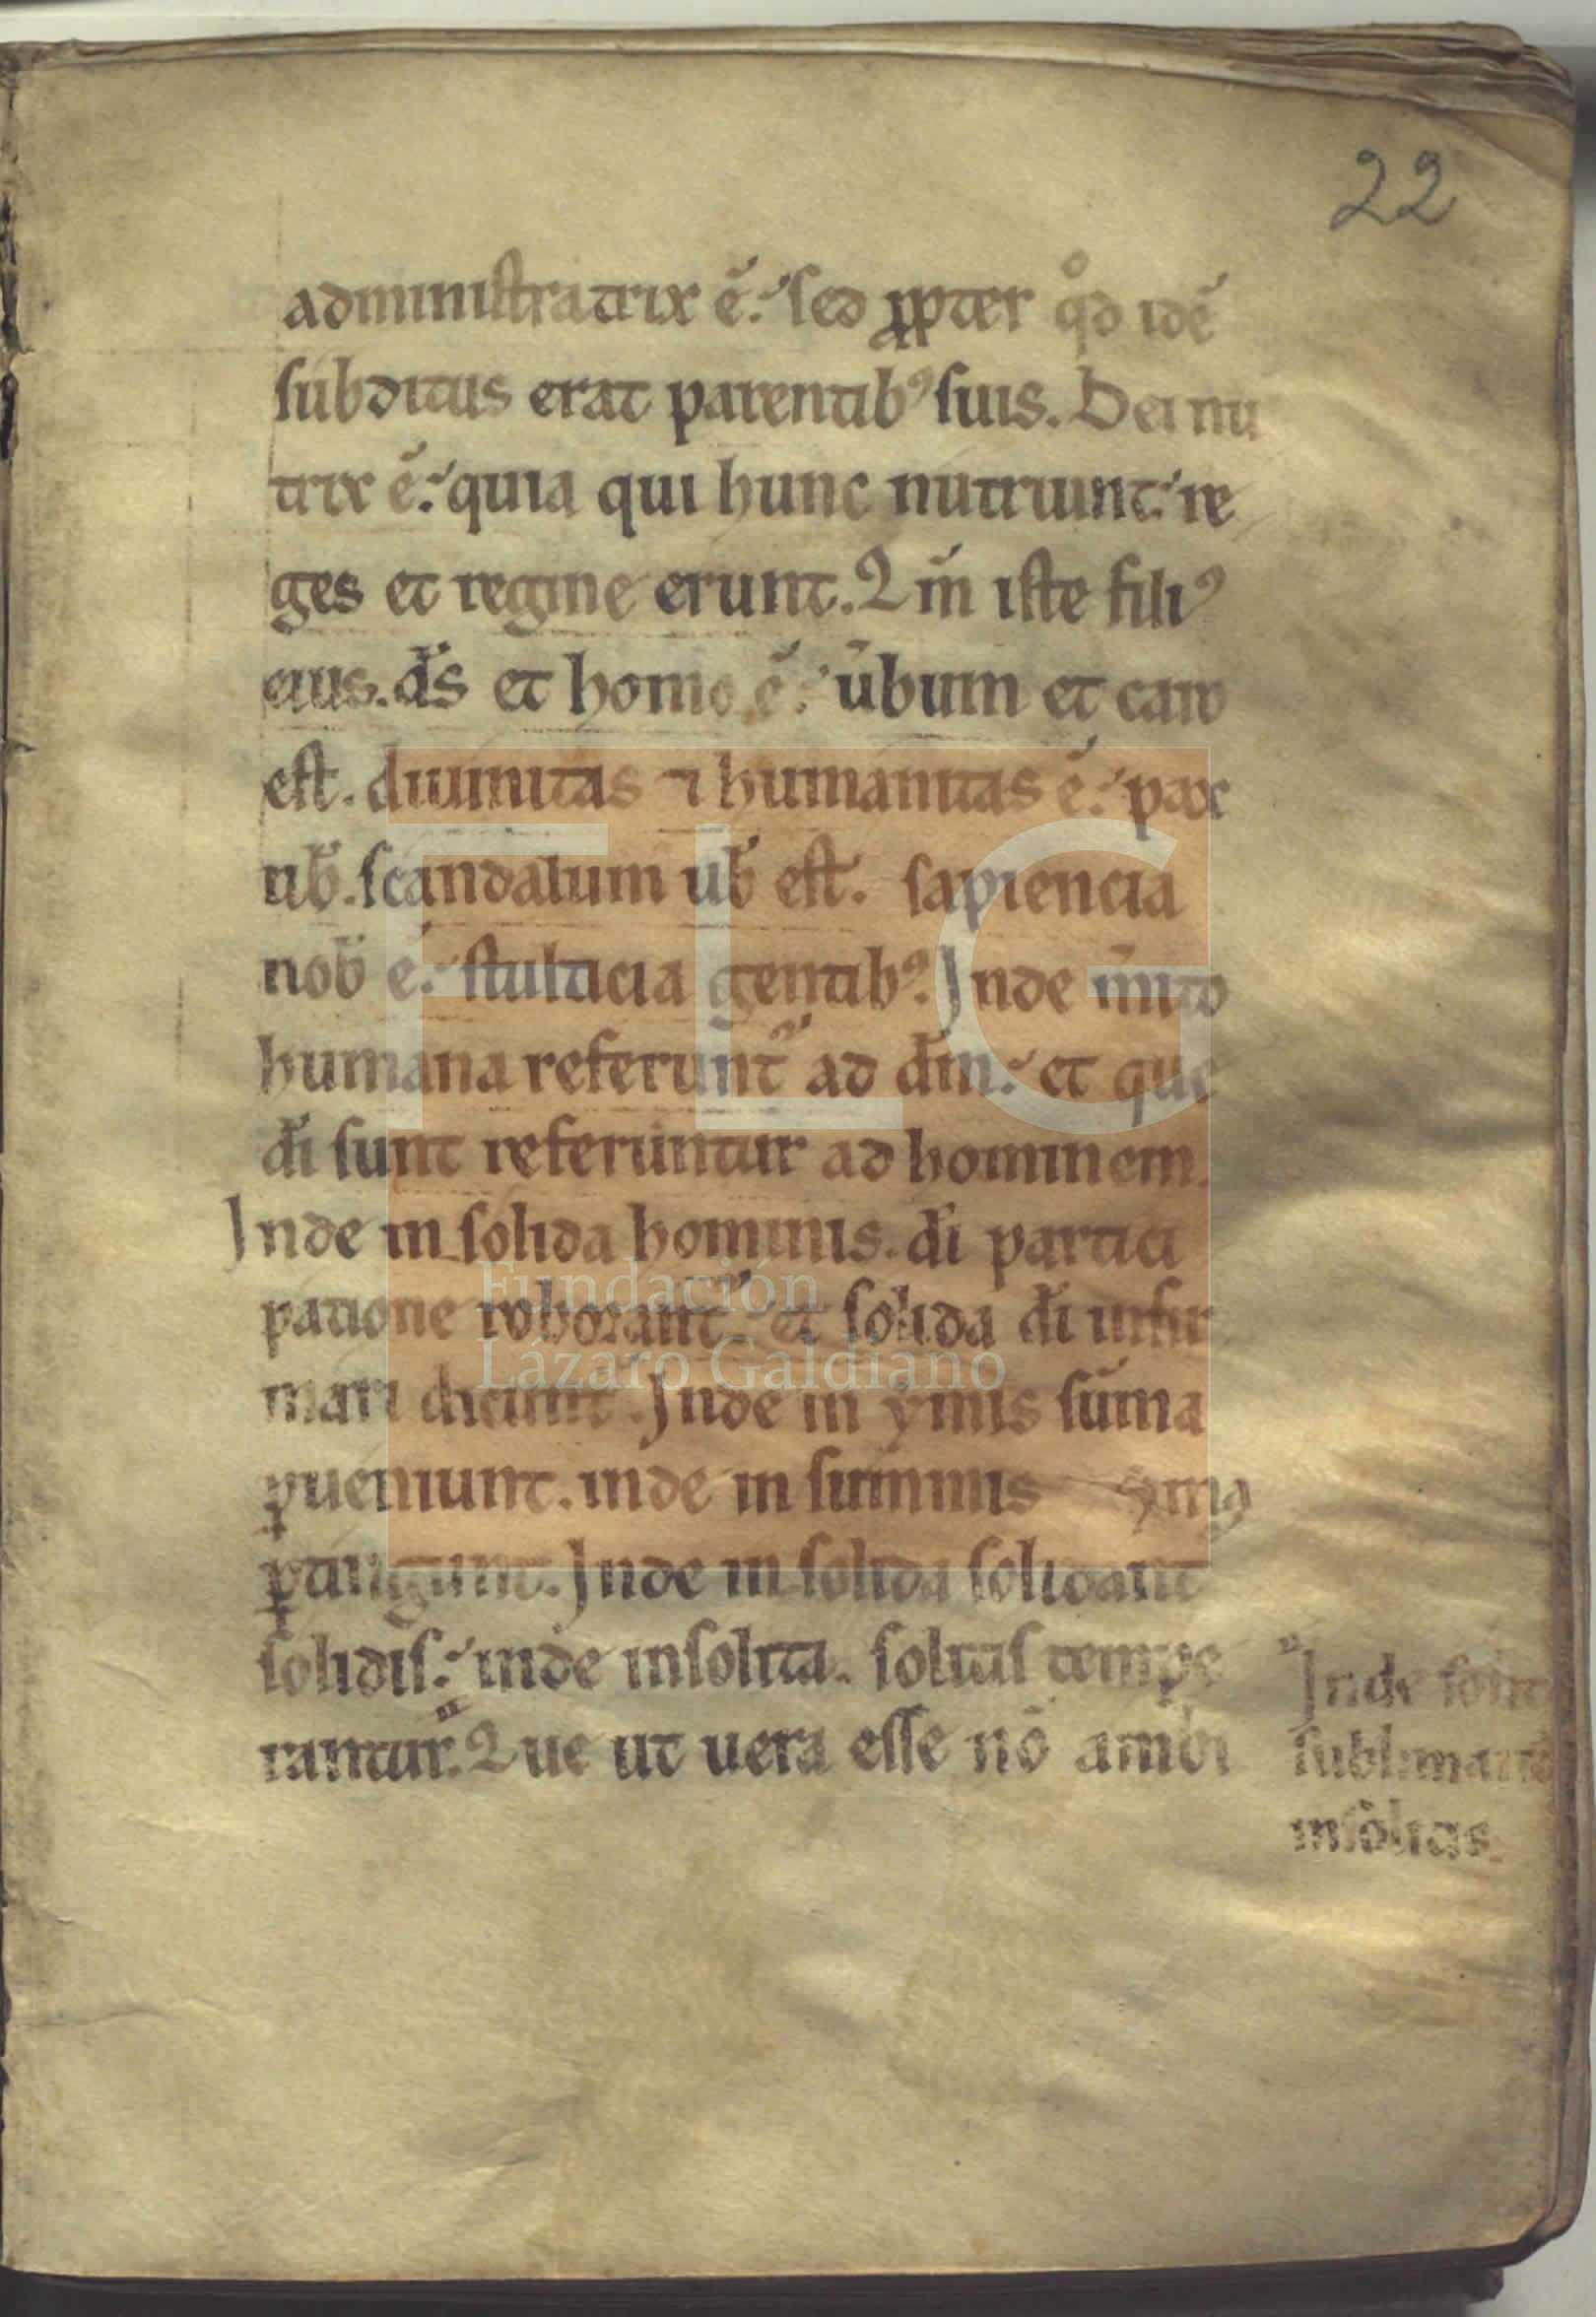 22
administratrix ē. sed ꝓpter qͦd idē
subditus erat parentibꝰ suis. Dei nu
trix ē. quia qui hunc nutriunt re
ges et regine erunt. Qm̄ iste filiꝰ
eius. d̄s et homo ē. ūbum et caro
est. diuinitas ⁊ humanitas ē. pax
nb̄. scandalum ub̄ est. sapiencia
nob̄ ē. stulticia gentibꝰ. Inde m̄ito
humana referunt᷑ ad dm̄. et que
di̅ sunt referuntur ad hominem.
Inde in solida hominis. di̅ partici
patione roborant᷑. et solida di̅ infir
mari dicunt᷑. Inde in ymis sūma
ꝑueniunt. inde in summis yma
ꝑtingunt. Inde in solida solidant᷑
solidis. inde insolita. solitis tempe
rantur. Que ut uera esse nō ambi
Inde
sublimant᷑
insolitis.
FLG
Fundación
Lázaro Galdiano